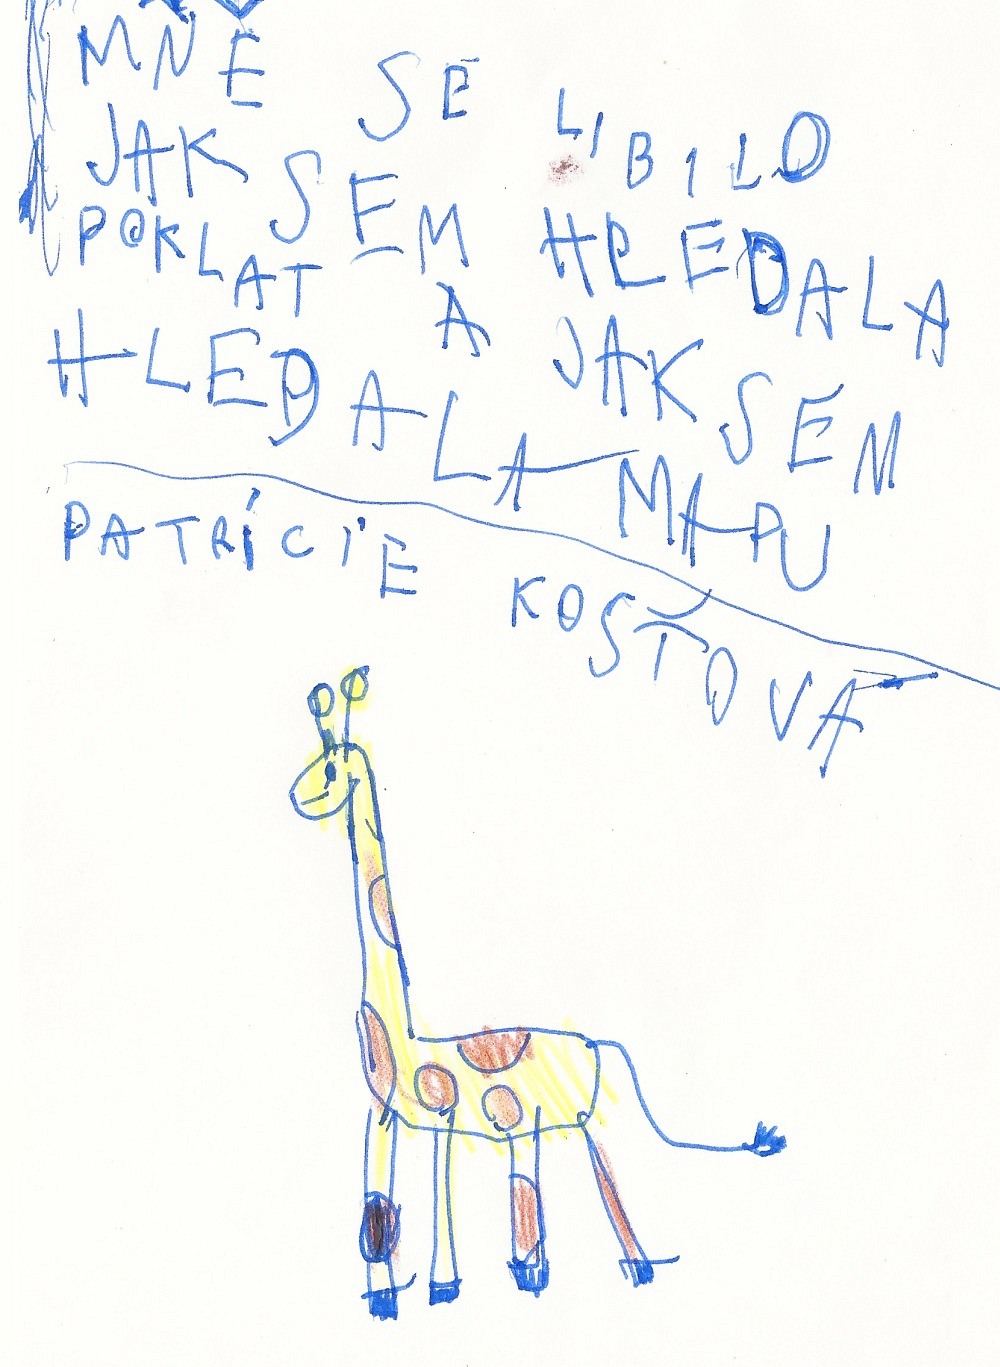 MNĚ SE LÍBILO
JAK SEM HLEDALA
POKLAT A JAK SEM
HLEDALA MAPU
PATRÍCÍE KOŠŤOVA